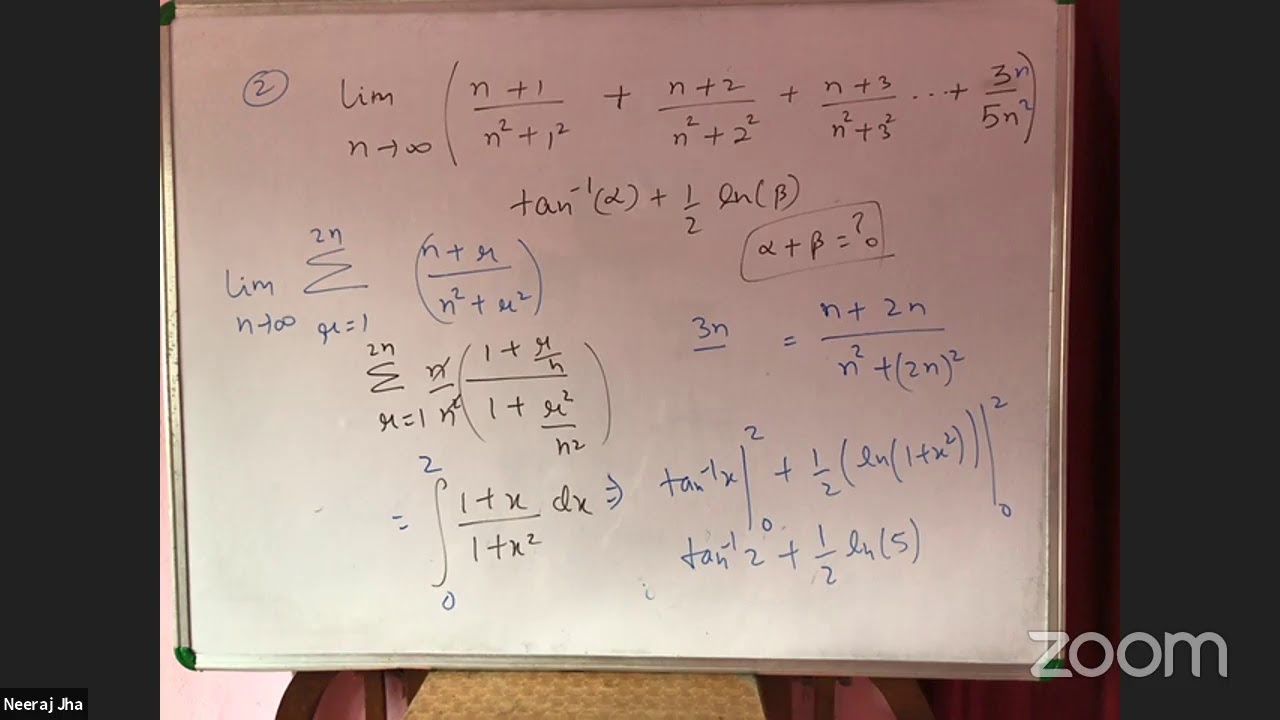 ② lim n→∞ ( (n+1)/(n²+1²) + (n+2)/(n²+2²) + (n+3)/(n²+3²) ...+ 3n/5n² )
tan⁻¹(α) + 1/2 ln(β)
α + β = ?
lim n→∞ Σ r=1 2n ( (n+r)/(n²+r²) )
3n = (n+2n)/(n²+(2n)²)
Σ r=1 2n n/n² ( (1+r/n)/(1+r²/n²) )
= ∫ 0 2 (1+x)/(1+x²) dx ⇒ tan⁻¹x | 0 2 + 1/2 (ln(1+x²)) | 0 2
tan⁻¹2 + 1/2 ln(5)
zoom
Neeraj Jha